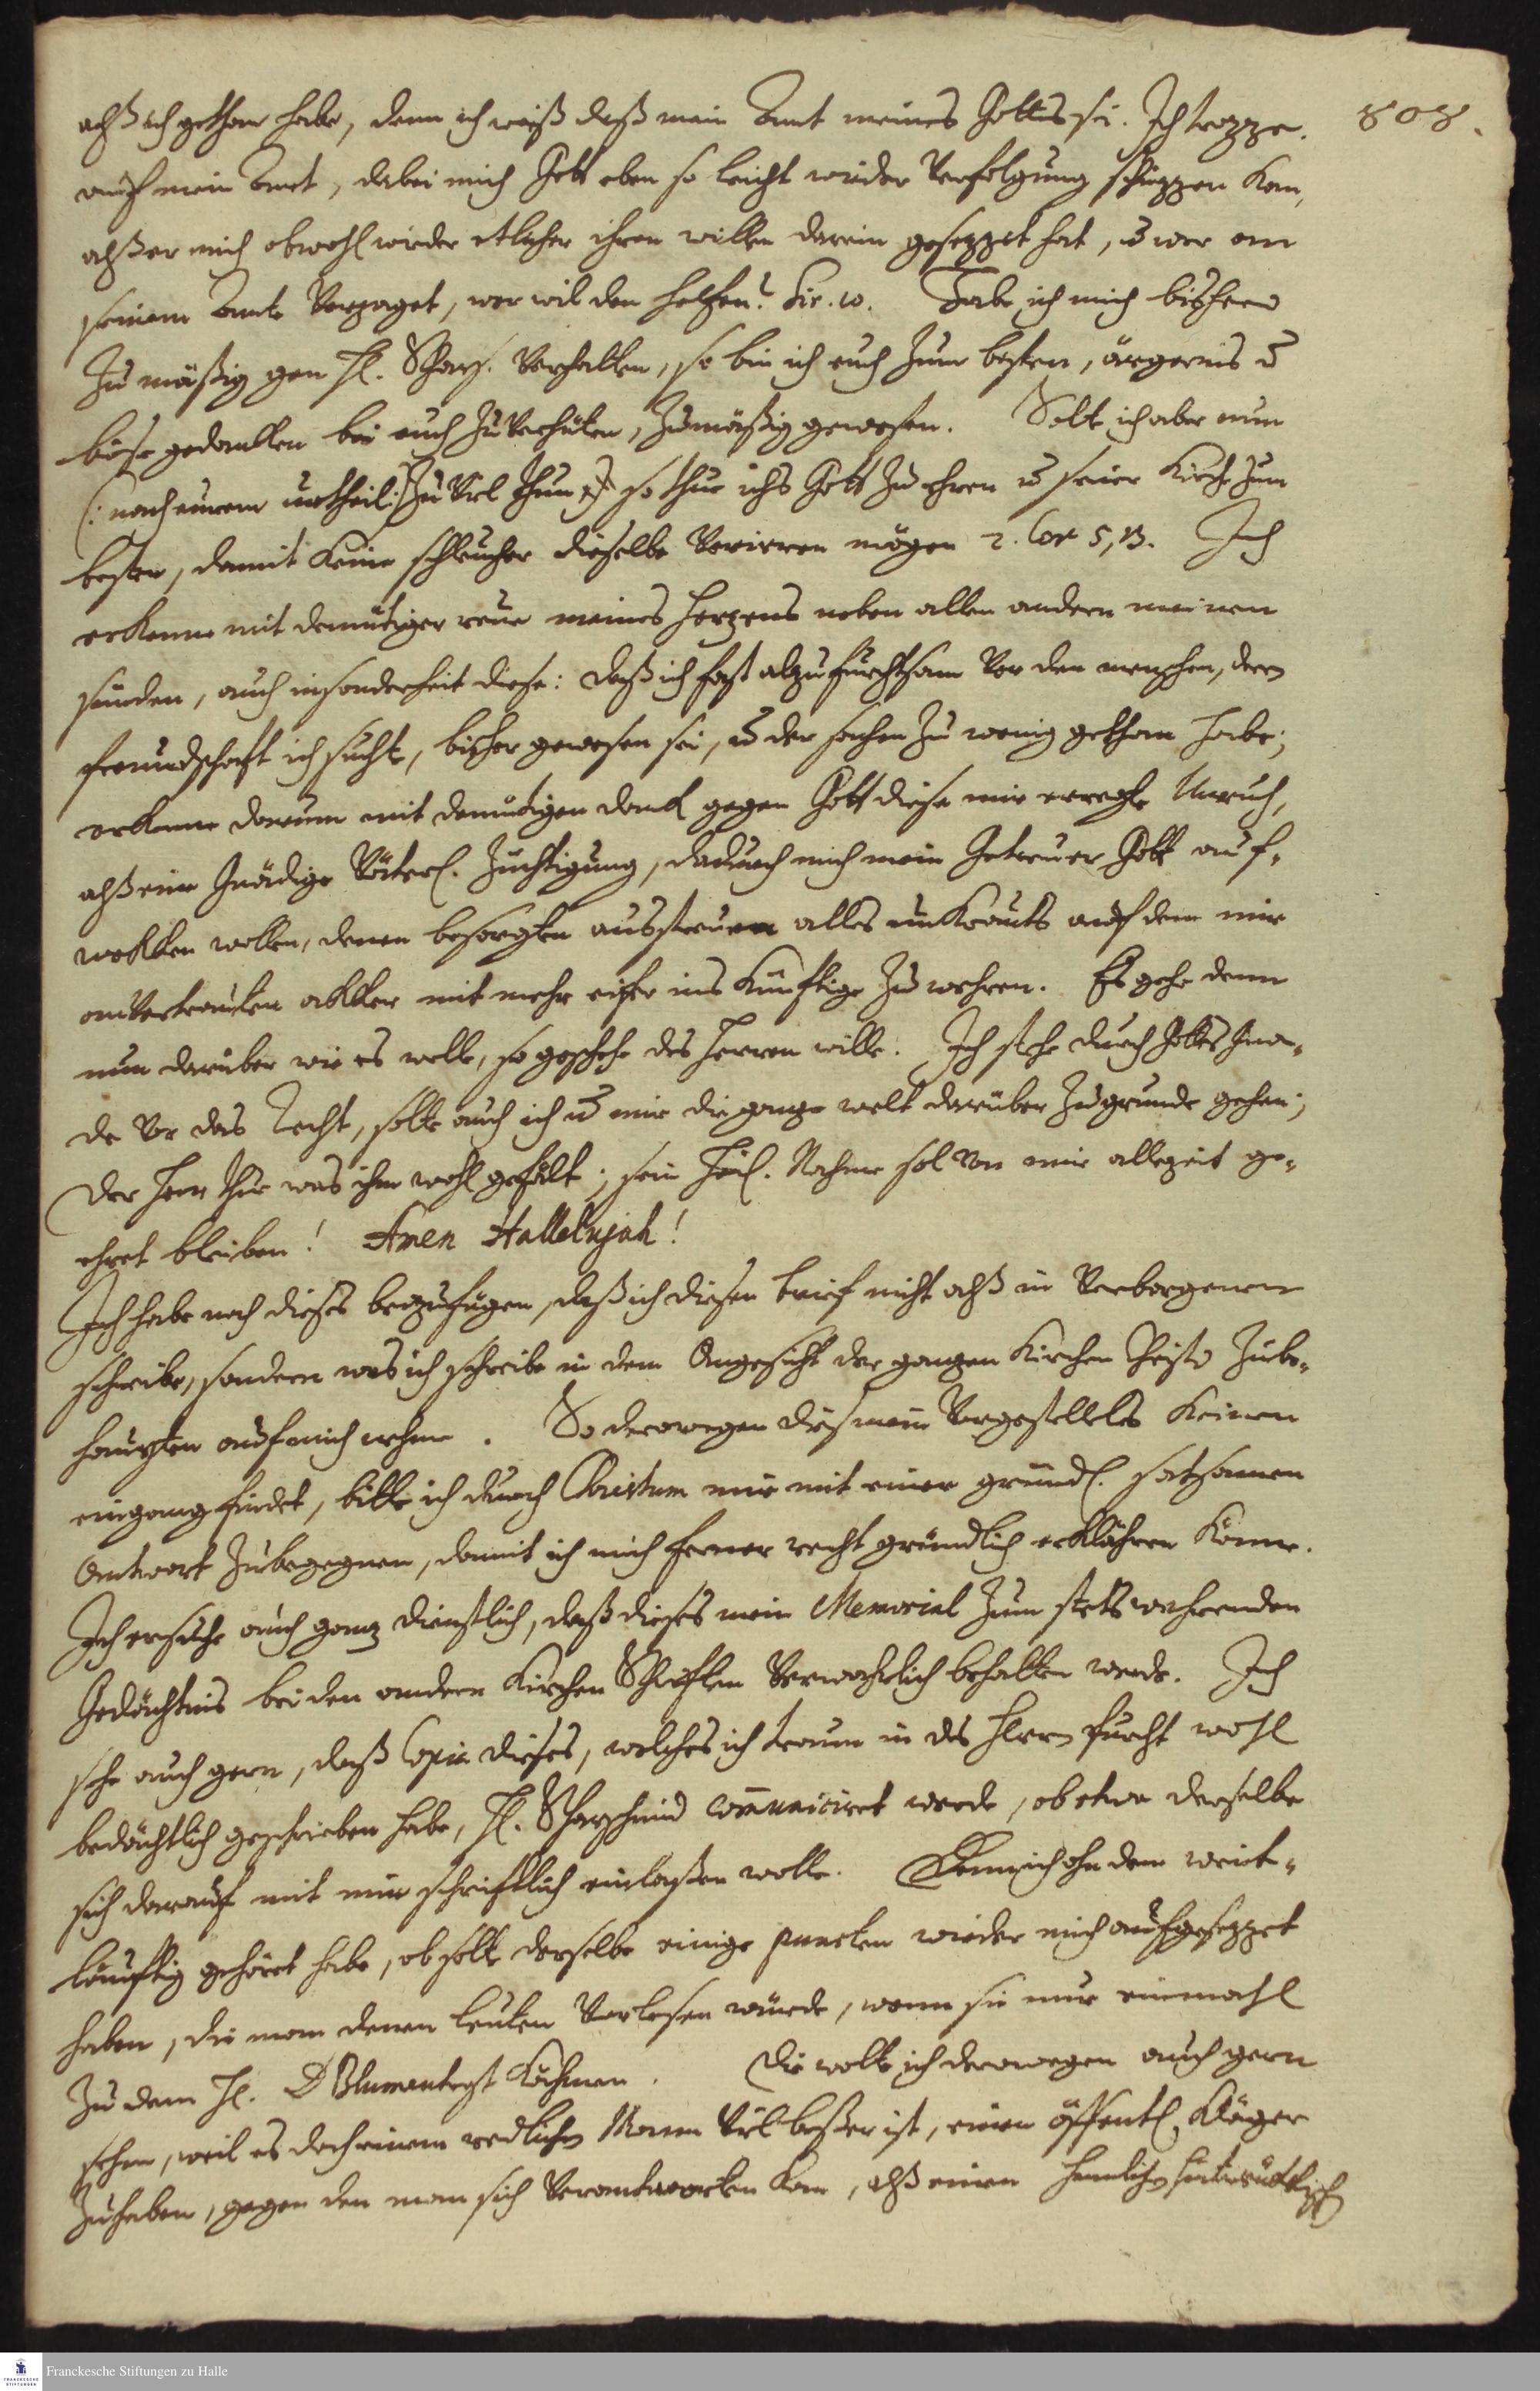 808.
alß ich gethan habe, denn ich weiß daß mein Amt meines Gottes sei. Ich trozze
auf mein Amt, dabei mich Gott eben so leicht wieder Verfolgung schüzzen kan,
alß er mich obwohl wieder etlicher ihren willen darein gesezzet hat, u wer an
seinem Amte Verzaget, wer wil den helfen? Sir. 10. Habe ich mich bishero
zu mäßig gen H. Scharf. Verhalten, so bin ich euch zum besten, ärgernis u
böse gedanken bei euch zu Verhüten, zu mäßig gewesen. Solt ich aber nun
(: nach eurem urtheil :) zu Viel thun, so thue ichs Gott zu ehren u seiner Kirche zum
besten, damit keine schleicher dieselbe Verirren mögen 2. Cor 5, 13. Ich
erkenne mit demütiger reue meines Herzens neben allen andern meinen
sünden, auch insonderheit diese: daß ich fast alzu fürchtsam Vor den menschen, deren
freundschaft ich suchte, bisher gewesen sei, u der sachen zu wenig gethan habe;
erkenne darum mit demütigen dank gegen Gott diese mir erregte Unruh,
alß eine Gnädige Väterl. Züchtigung, dadurch mich mein Getreuer Gott auf-
wekken wollen, denen besorgten ausstreuen alles unkrauts auf dem mir
anVertrauten akker mit mehr eifer ins künftige zu wehren. Es gehe denn
nun darüber wie es wolle, so geschehe des Herren wille. Ich stehe durch Gottes Gna-
de Vor das Recht, solte auch ich u mir die ganze welt darüber zu grunde gehen;
Der Herr thue was ihm wohl gefält; sein Heil. Nahme sol Von mir allezeit ge-
ehret bleiben! Amen Hallelujah!
Ich habe noch dieses beizufügen, daß ich diesen brief nicht alß in Verborgenen
schreibe, sondern was ich schreibe in dem Angesicht der ganzen Kirchen Christi zube-
haupten auf mich nehme. So derowegen dies mein Vorgestelltes keinen
eingang findet, bitte ich durch Christum mir mit einer gründl. satsamen
Antwort zubegegnen, damit ich mich ferner recht gründlich erklähren könne.
Ich ersuche auch ganz dienstlich, daß dieses mein Memorial zum stets wehrenden
Gedächtnis bei den andern Kirchen Schriften Verwahrlich behalten werde. Ich
sehe auch gern, daß Copia dieses, welches ich traun in des Herrn furcht wohl
bedächtlich geschrieben habe, H. Scharschmid communiciret werde, ob etwa derselbe
sich darauf mit mir schriftlich einlaßen wolle. Denn ich ohn dem weit-
läuftig gehöret habe, ob solte derselbe einige puncten wieder mich aufgesezzet
haben, die man denen leuten Vorlesen würde, wenn sie nur einmahl
zu dem H. D Blumentrost kähmen. Die wolte ich derowegen auch gern
sehen, weil es doch einem redlichen Mann Viel beßer ist, einen öffentl. Kläger
zuhaben, gegen den man sich Verantworten kan, alß einen heimlichen
Franckesche Stiftungen zu Halle